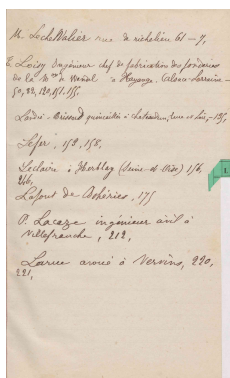 M. LeChevalier rue de richelieu 61 - 7,
E Loisy Ingénieur chef de fabrication des fonderies
de la Mson de Wendel à Hayange (Alsace-Lorraine -
50, 88, 120, 151, 155,
Landié - Brissard quincaillier à Chateaudun, Eure et Loir, - 135,
Lefer, 152, 158,
Leclaire à Herblay (Seine-et-Oise) 156,
246,
Lafont de 175
P. Lacaze ingénieur civil à
Villefranche, 212,
Larue avoué à Vervins, 220,
221,